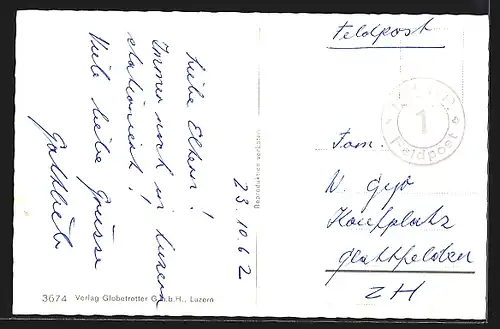 Feldpost
1
Feldpost
Fam.
Kaufplatz
Glattfelden
ZH
23.10.62
Liebe Eltern!
Immer noch in Luzern
stationiert!
Viele liebe Grüsse
Gottlieb
Reproduktion verboten
3674 Verlag Globetrotter G.m.b.H., Luzern